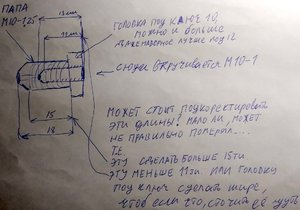 ПАПА
М10-1,25
13мм
11мм
ГОЛОВКА ПОД КЛЮЧ 10,
МОЖНО И БОЛЬШЕ
ДАЖЕ НАВЕРНОЕ ЛУЧШЕ ПОД 12
СЮДА ВКРУЧИВАЕТСЯ М10-1
15
18
МОЖЕТ СТОИТ ПОДКОРЕКТИРОВАТЬ
ЭТИ ДЛИНЫ? МАЛО ЛИ, МОЖЕТ
НЕ ПРАВИЛЬНО ПОМЕРИЛ...
Т.Е
ЭТУ СДЕЛАТЬ БОЛЬШЕ 15ТИ
ЭТУ МЕНЬШЕ 11ТИ ИЛИ ГОЛОВКУ
ПОД КЛЮЧ СДЕЛАТЬ ШИРЕ,
ЧТОБ ЕСЛИ ЧТО, СТОЧИТЬ ЕЁ ЧУТЬ